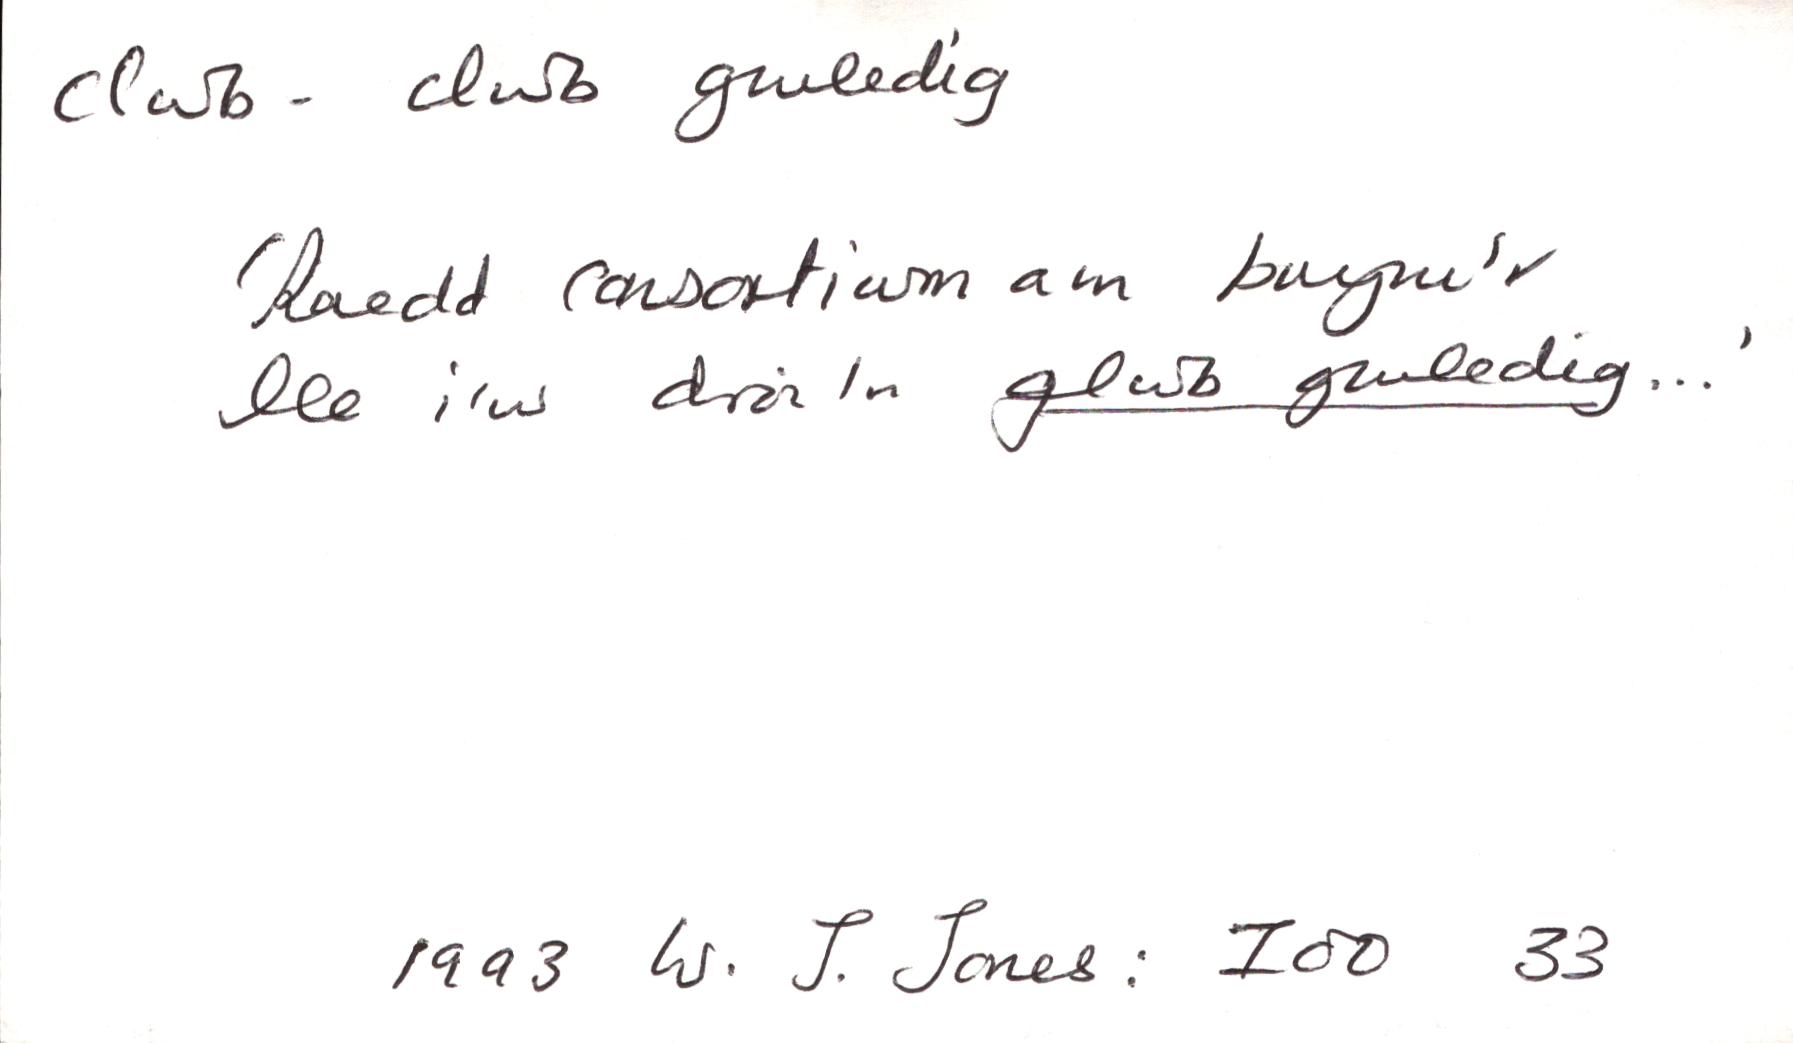 clwb - clwb gwledig
'Roedd consortiwm am brynu'r
lle i'w droi'n glwb gwledig...'
1993 W. J. Jones: IOO 33